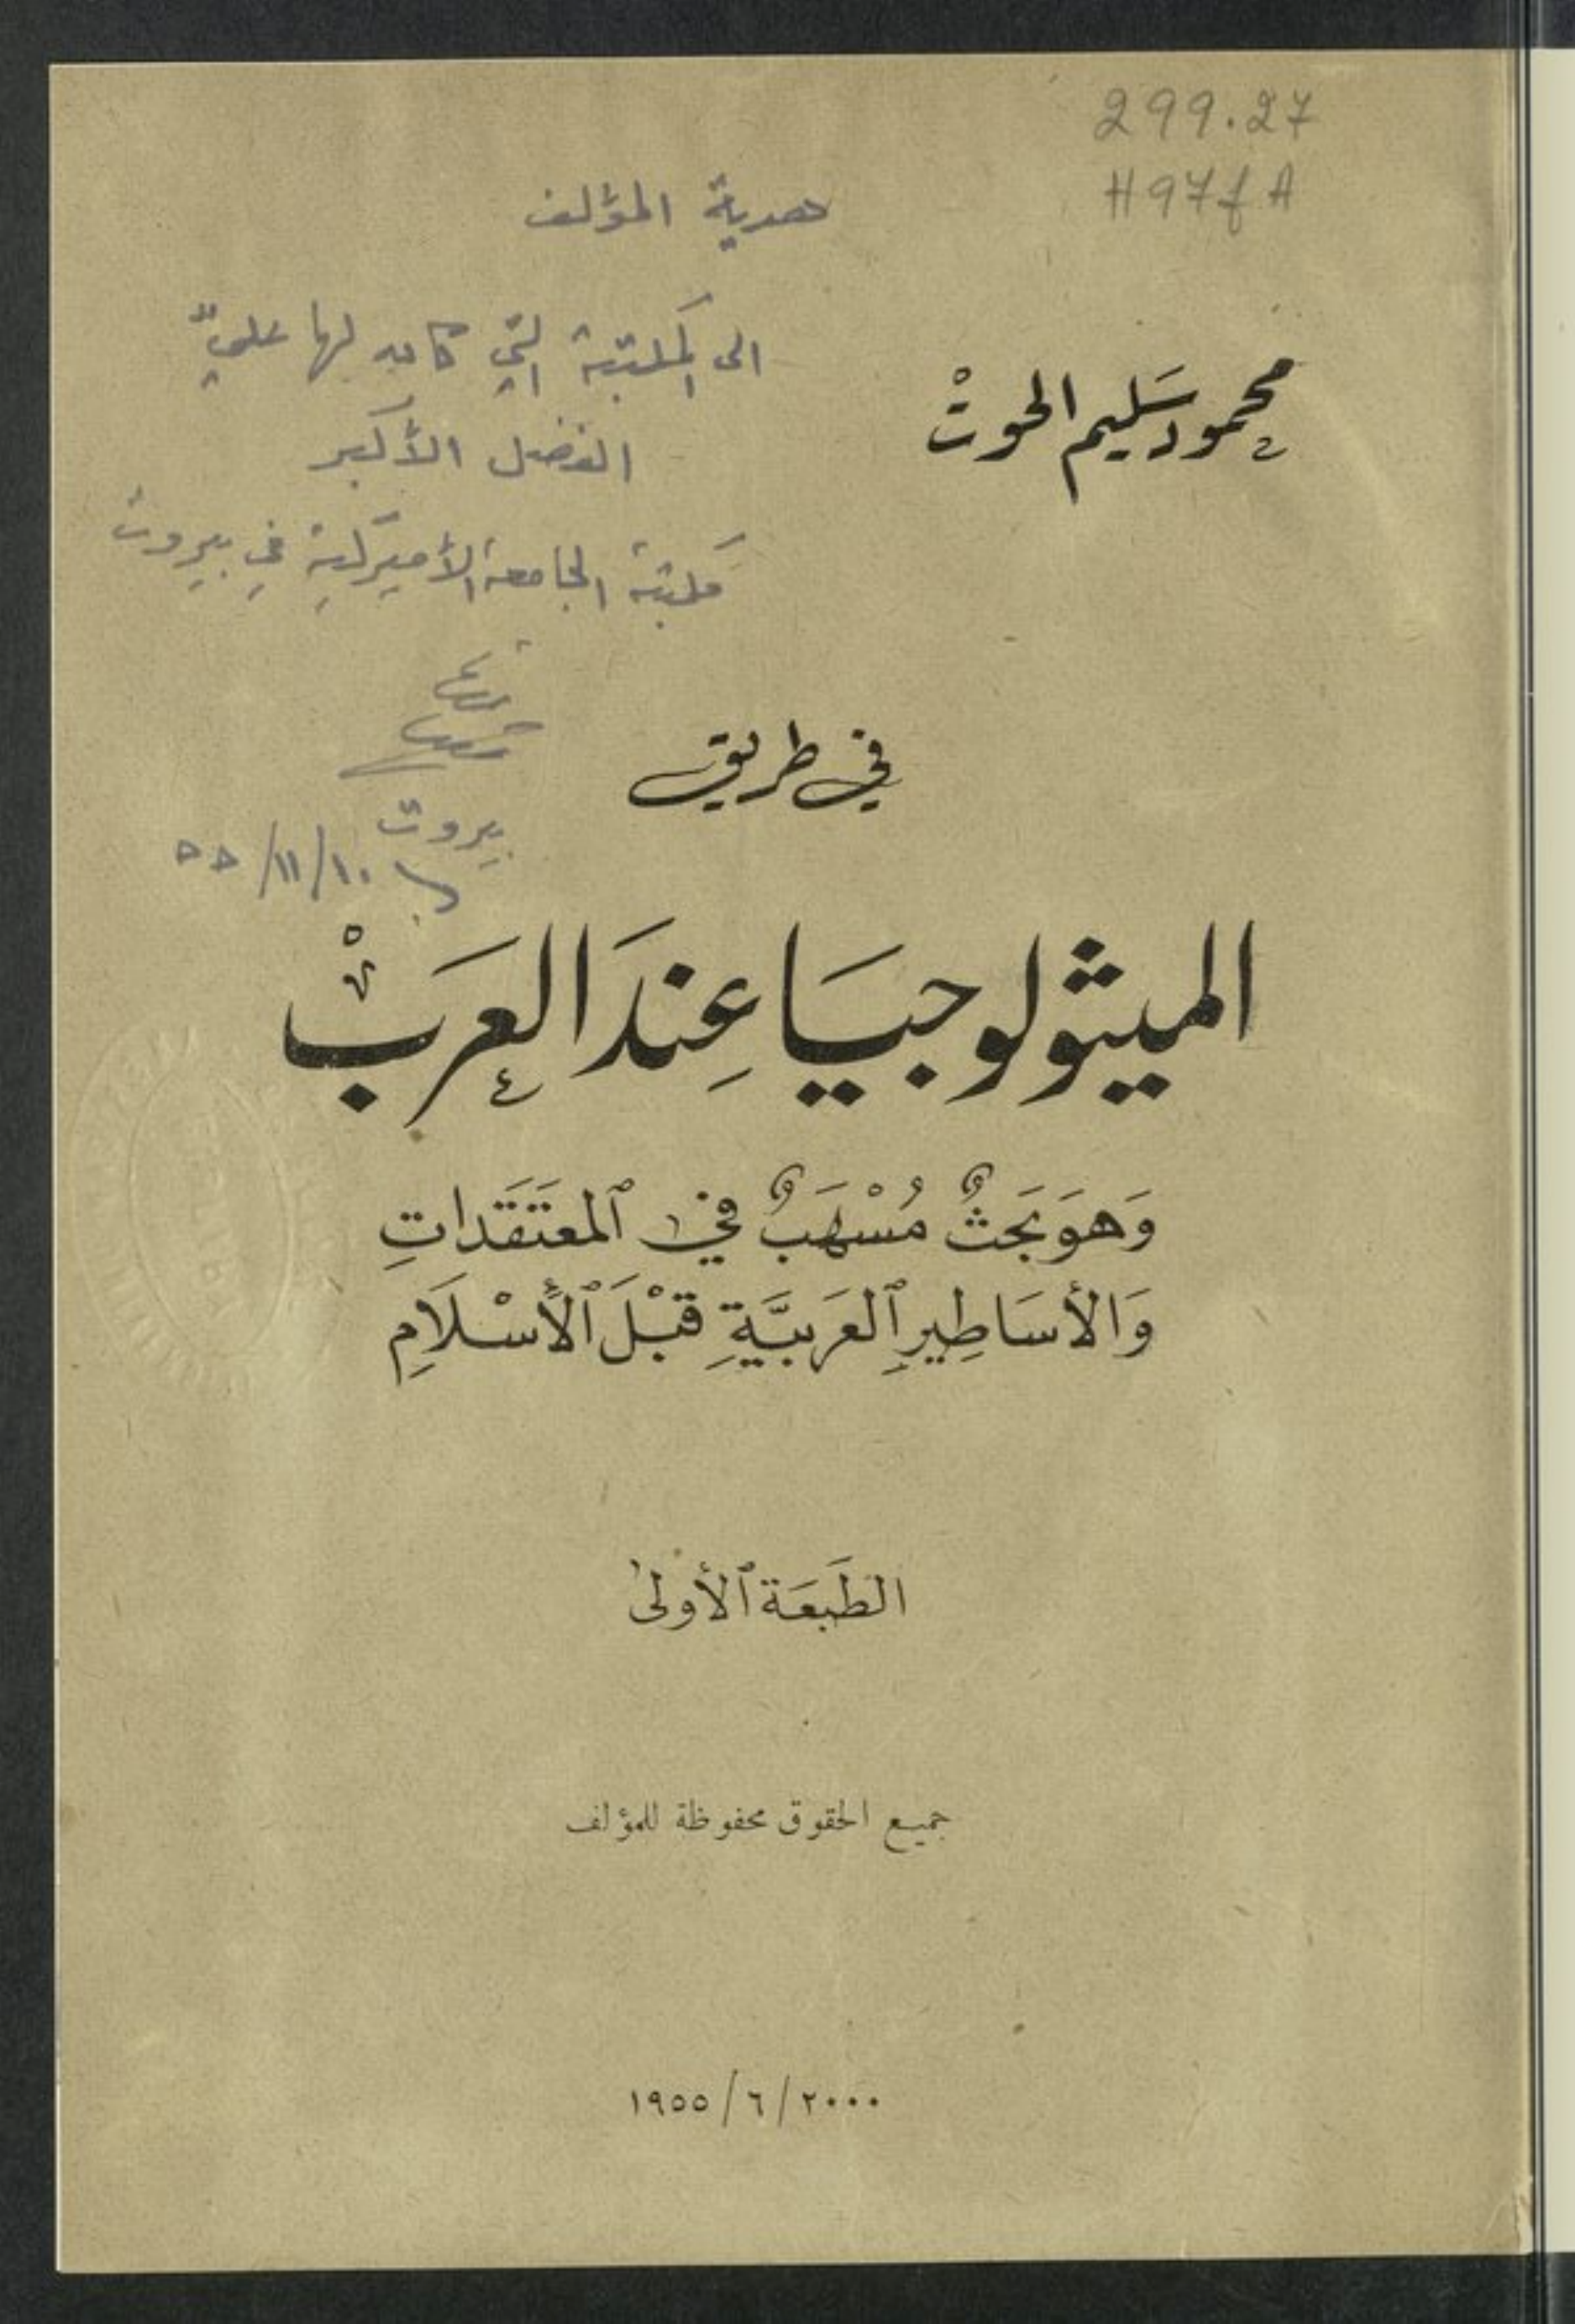 299.27
H97fA
هدية المؤلف
الى المكتبة التي كان لها عليّ
الفضل الأكبر
مكتبة الجامعة الأميركية في بيروت
بيروت
١٠/١١/٥٥
محمود سَليم الحوتْ
في طريق
الميثولوجيَا عِندَ العَرَبْ
وَهوَ بَحثٌ مُسْهَبٌ في ٱلمعتَقَداتِ
وَالأسَاطِيرِ ٱلعَرَبيَّةِ قبْلَ ٱلأسْلَامِ
الطَبعَة ٱلأولى
جميع الحقوق محفوظة للمؤلف
١٩٥٥/٦/٢٠٠٠